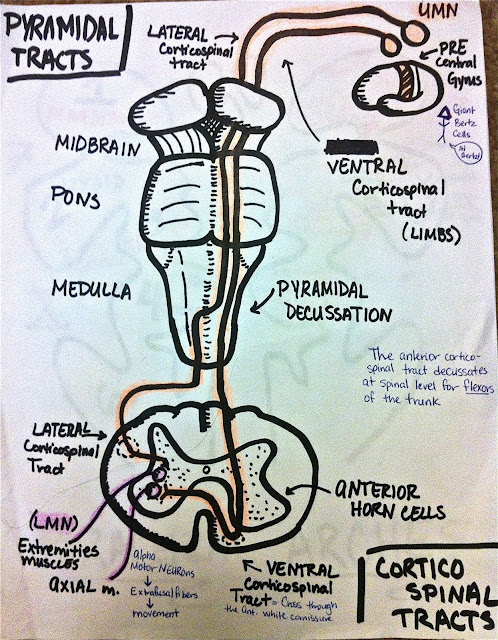 PYRAMIDAL
TRACTS
LATERAL
Corticospinal
tract
UMN
PRE
central
Gyrus
Giant
Bertz
Cells
Hi
Bertz!
MIDBRAIN
PONS
MEDULLA
VENTRAL
Corticospinal
tract
(LIMBS)
PYRAMIDAL
DECUSSATION
The anterior cortico-
spinal tract decussates
at spinal level for flexors
of the trunk
LATERAL
Corticospinal
Tract
(LMN)
Extremities
muscles
AXIAL m.
alpha
Motor NEURons
Extrafusal fibers
movement
ANTERIOR
HORN CELLS
VENTRAL
Corticospinal
Tract = Cross through
the ant. white comissure
CORTICO
SPINAL
TRACTS